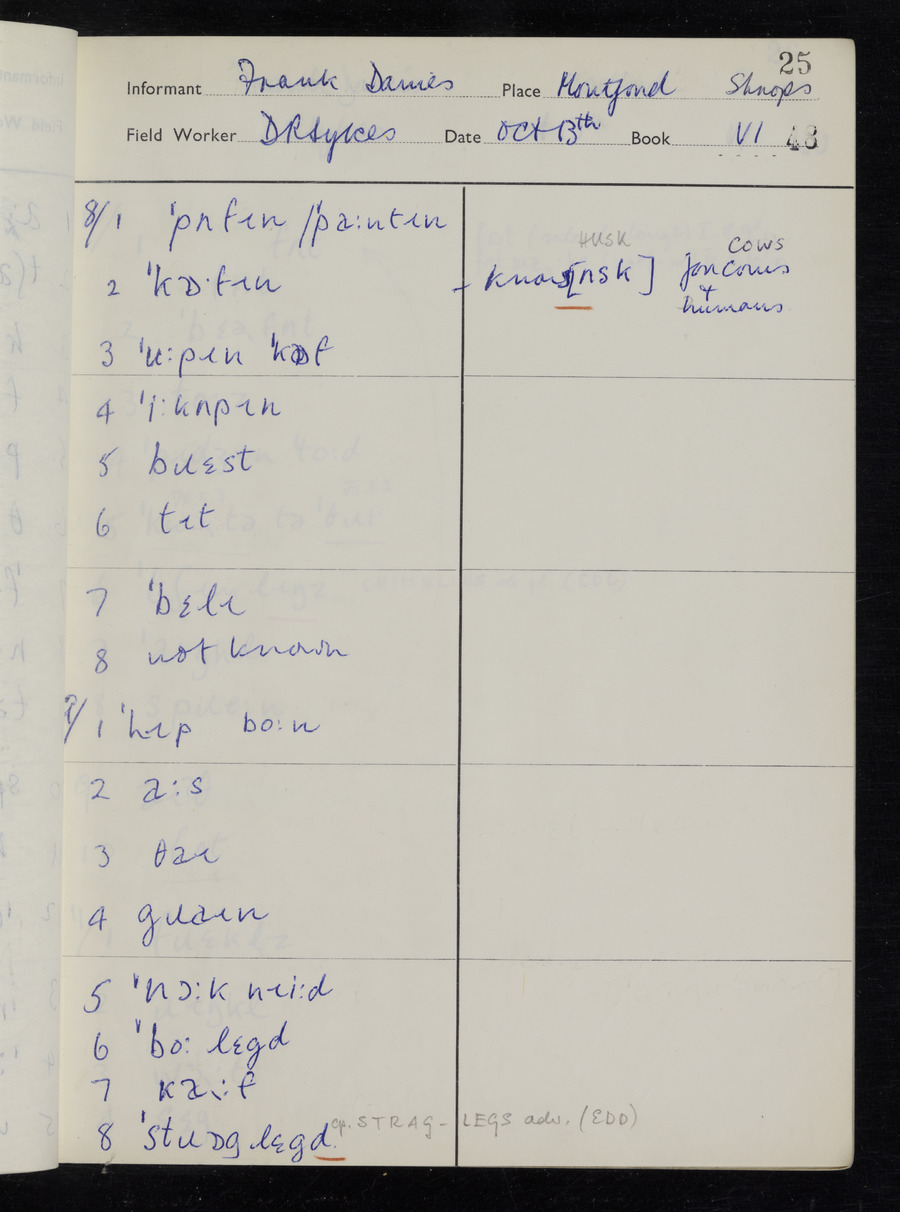 25
Informant Frank Davies Place Montford Shrops
Field Worker DRSykes Date Oct 13th Book VI 48
8/1 ˈpʌfɪn /ˈpaːntɪn
2 ˈkɒˑfɪn
HUSK
cows
– knows [ʌsk] for cows + humans
3 ˈɪːpɪn ˈkɒf
4 ˈiːkʌpɪn
5 bɹɛst
6 tɪt
7 ˈbɛlɪ
8 not known
9/1 ˈhɪp boːn
2 aːs
3 θaɪ
4 gɹaɪn
5 ˈnɔːk niːd
6 ˈboː lɛgd
7 kaːf
8 ˈstɹɒg lɛgd cp. STRAG-LEGS adv. (EDD)